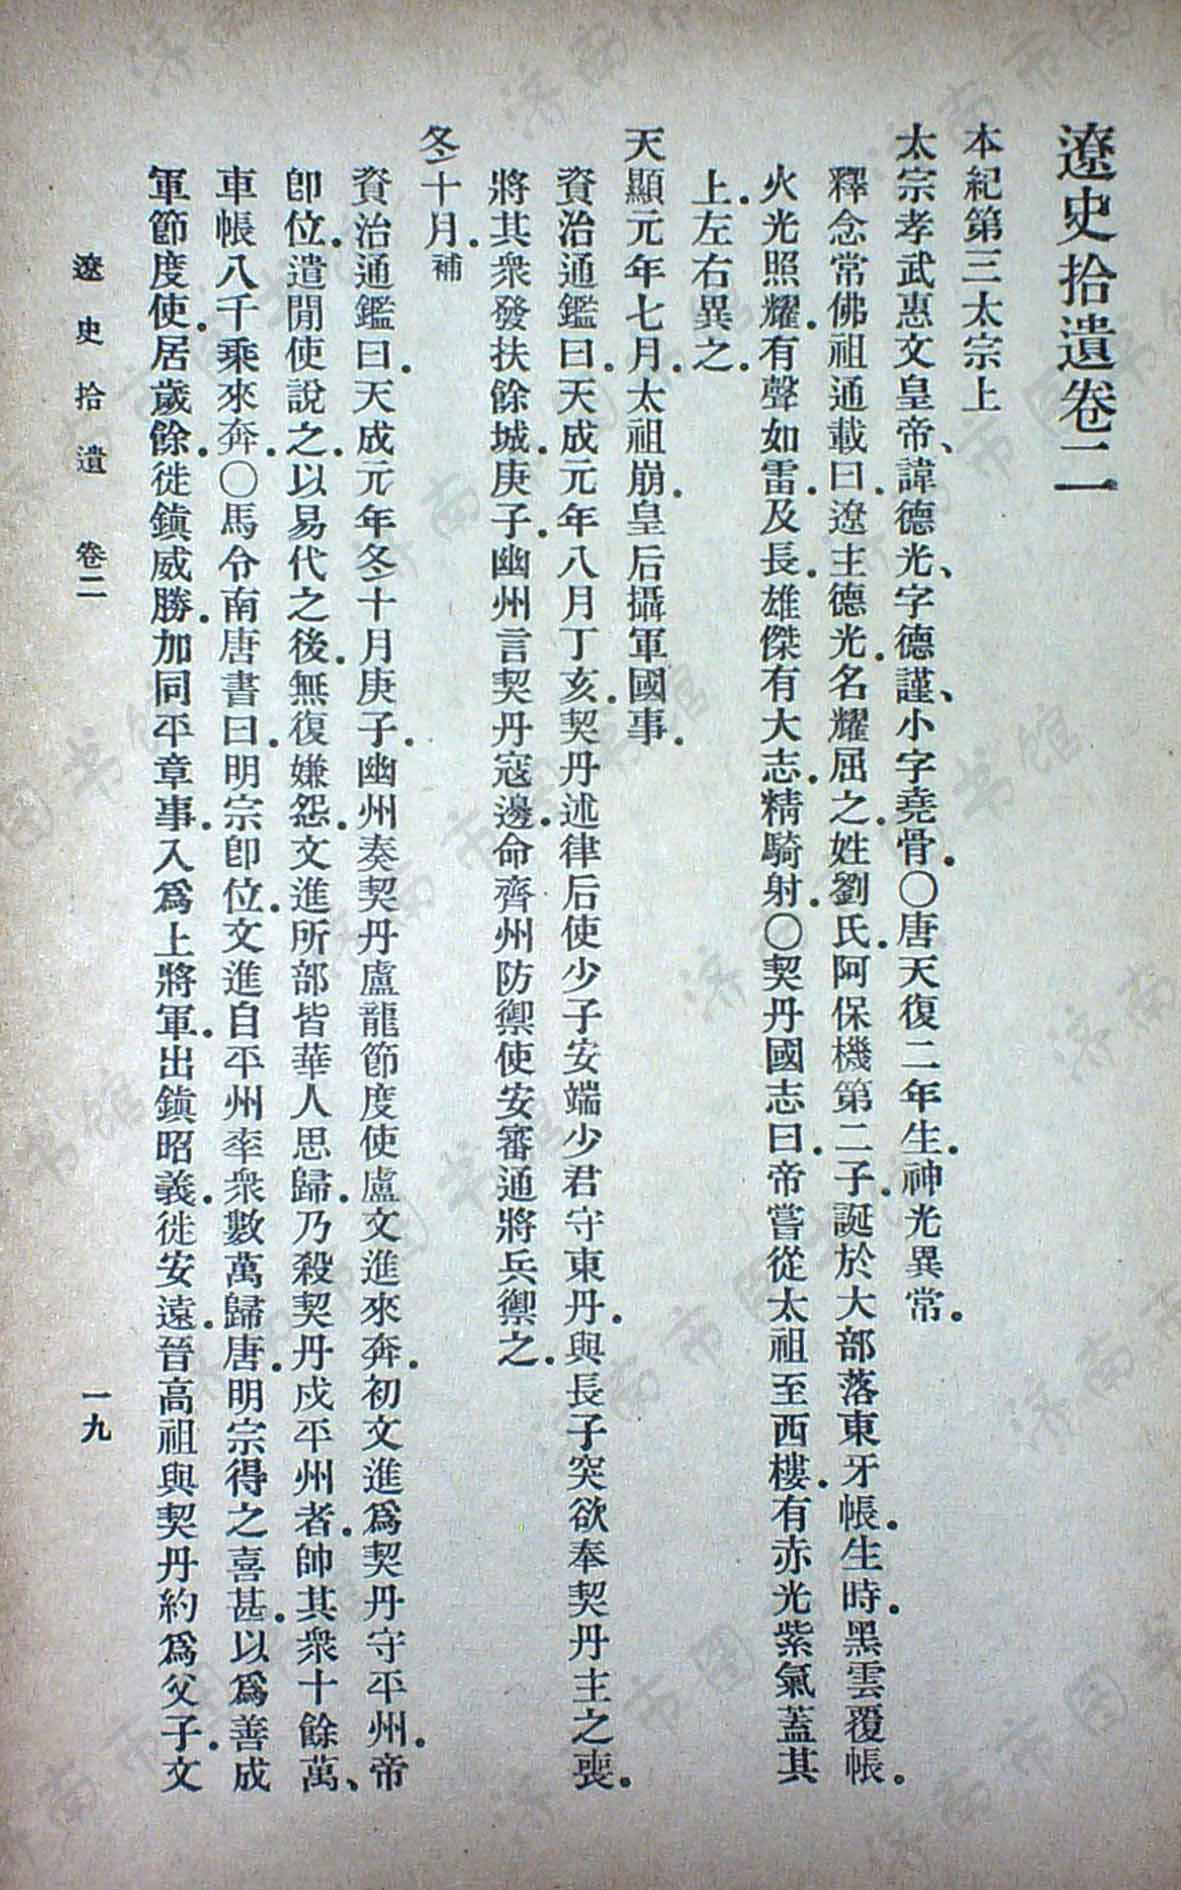 遼史拾遺卷二
本紀第三太宗上
太宗孝武惠文皇帝、諱德光、字德謹、小字堯骨。〇唐天復二年生。神光異常。
釋念常佛祖通載曰。遼主德光。名耀屈之。姓劉氏。阿保機第二子。誕於大部落東牙帳。生時。黑雲覆帳。
火光照耀。有聲如雷。及長。雄傑有大志。精騎射。〇契丹國志曰。帝嘗從太祖至西樓。有赤光紫氣蓋其
上。左右異之。
天顯元年七月。太祖崩。皇后攝軍國事。
資治通鑑曰。天成元年八月丁亥。契丹述律后使少子安端少君守東丹。與長子突欲奉契丹主之喪。
將其衆發扶餘城。庚子。幽州言契丹寇邊。命齊州防禦使安審通將兵禦之。
冬十月。補
資治通鑑曰。天成元年冬十月庚子。幽州奏契丹盧龍節度使盧文進來奔。初文進爲契丹守平州。帝
卽位。遣間使說之。以易代之後。無復嫌怨。文進所部皆華人思歸。乃殺契丹戍平州者。帥其衆十餘萬、
車帳八千乘來奔。〇馬令南唐書曰。明宗卽位。文進自平州率衆數萬歸唐。明宗得之喜甚。以爲善成
軍節度使。居歲餘。徙鎭威勝。加同平章事。入爲上將軍。出鎭昭義。徙安遠。晉高祖與契丹約爲父子。文
遼史拾遺 卷二 一九
济南市图书馆